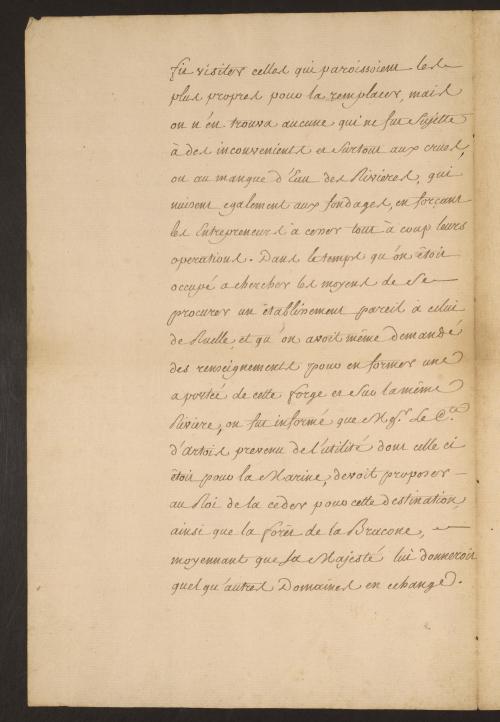 fit visiter celles qui paroissoient les
plus propres pour la remplacer, mais
on n'en trouva aucune qui ne fut Sujette
à des inconvenients et surtout aux crues,
ou au manque d'Eau des Rivieres, qui
nuisent egalement aux fondages, en forçant
les Entrepreneurs à cesser tout à coup leurs
operations. Dans le temps qu'on étoit
occupé a chercher les moyens de se
procurer un établissement pareil à celui
de Ruelle, et qu'on avoit même demandé
des renseignements pour en former une
a portée de cette forge et sur la même
Riviere, on fut informé que M.gr Le C.te
d'artois prevenu de l'utilité dont celle ci
étoit pour la Marine, devoit proposer
au Roi de la ceder pour cette destination,
ainsi que la forêt de la Bracone,
moyennant que Sa Majesté lui donneroit
quelqu'autres Domaines en echange.